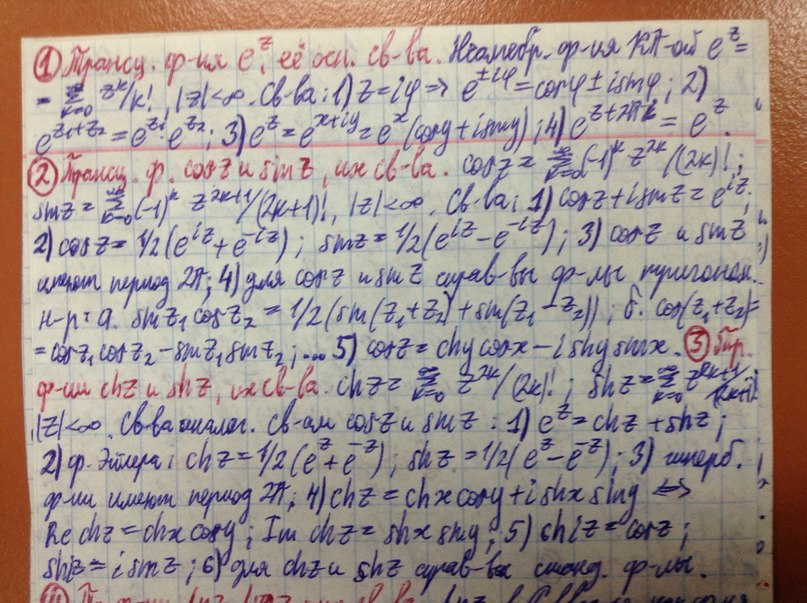 ① Трансц. ф-ия e^z, её осн. св-ва. Неалгебр. ф-ия КП-ой e^z =
= ∞Σk=0 z^k/k!, |z|<∞. Св-ва: 1) z=iφ => e^{±iφ}=cosφ±isinφ; 2)
e^{z₁+z₂}=e^{z₁}·e^{z₂}; 3) e^z=e^{x+iy}=e^x(cosy+isiny); 4) e^{z+2πk}=e^z.
② Трансц. ф. cosz и sinz, их св-ва. cosz=∞Σk=0(-1)^k z^{2k}/(2k)!;
sinz=∞Σk=0(-1)^k z^{2k+1}/(2k+1)!, |z|<∞. Св-ва: 1) cosz+isinz=e^{iz};
2) cosz=1/2(e^{iz}+e^{-iz}); sinz=1/2(e^{iz}-e^{-iz}); 3) cosz и sinz
имеют период 2π; 4) для cosz и sinz справ-вы ф-лы тригоном.
н-р: а. sinz₁cosz₂=1/2(sin(z₁+z₂)+sin(z₁-z₂)); б. cos(z₁+z₂)=
=cosz₁cosz₂-sinz₁sinz₂;... 5) cosz=chycosx-ishysinx. ③ Гир.
ф-ии chz и shz, их св-ва. chz=∞Σk=0 z^{2k}/(2k)!; shz=∞Σk=0 z^{2k+1}/(2k+1)!
|z|<∞. Св-ва аналог. св-ам cosz и sinz: 1) e^z=chz+shz;
2) ф. Эйлера: chz=1/2(e^z+e^{-z}); shz=1/2(e^z-e^{-z}); 3) гиперб.
ф-ии имеют период 2π; 4) chz=chxcosy+ishxsiny <=>
Re chz=chxcosy; Im chz=shxsiny; 5) chiz=cosz;
shiz=isinz; 6) для chz и shz справ-вы станд. ф-лы.